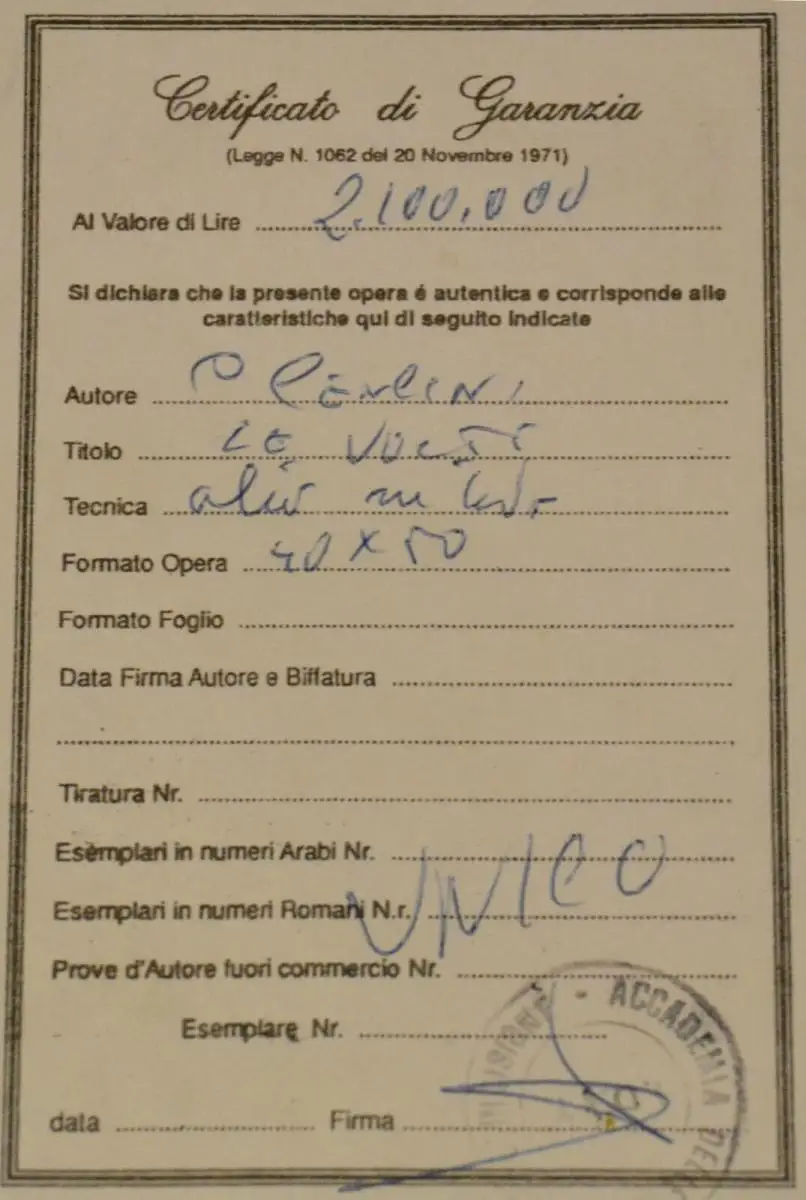 Certificato di Garanzia
(Legge N. 1062 del 20 Novembre 1971)
Al Valore di Lire 2.100.000
Si dichiara che la presente opera é autentica e corrisponde alle
caratteristiche qui di seguito indicate
Autore
Titolo LE
Tecnica olio su
Formato Opera 40 x 50
Formato Foglio
Data Firma Autore e Biffatura
Tiratura Nr.
Esemplari in numeri Arabi Nr.
UNICO
Esemplari in numeri Romani N.r.
Prove d'Autore fuori commercio Nr.
Esemplare Nr.
- ACCADEMIA
data Firma